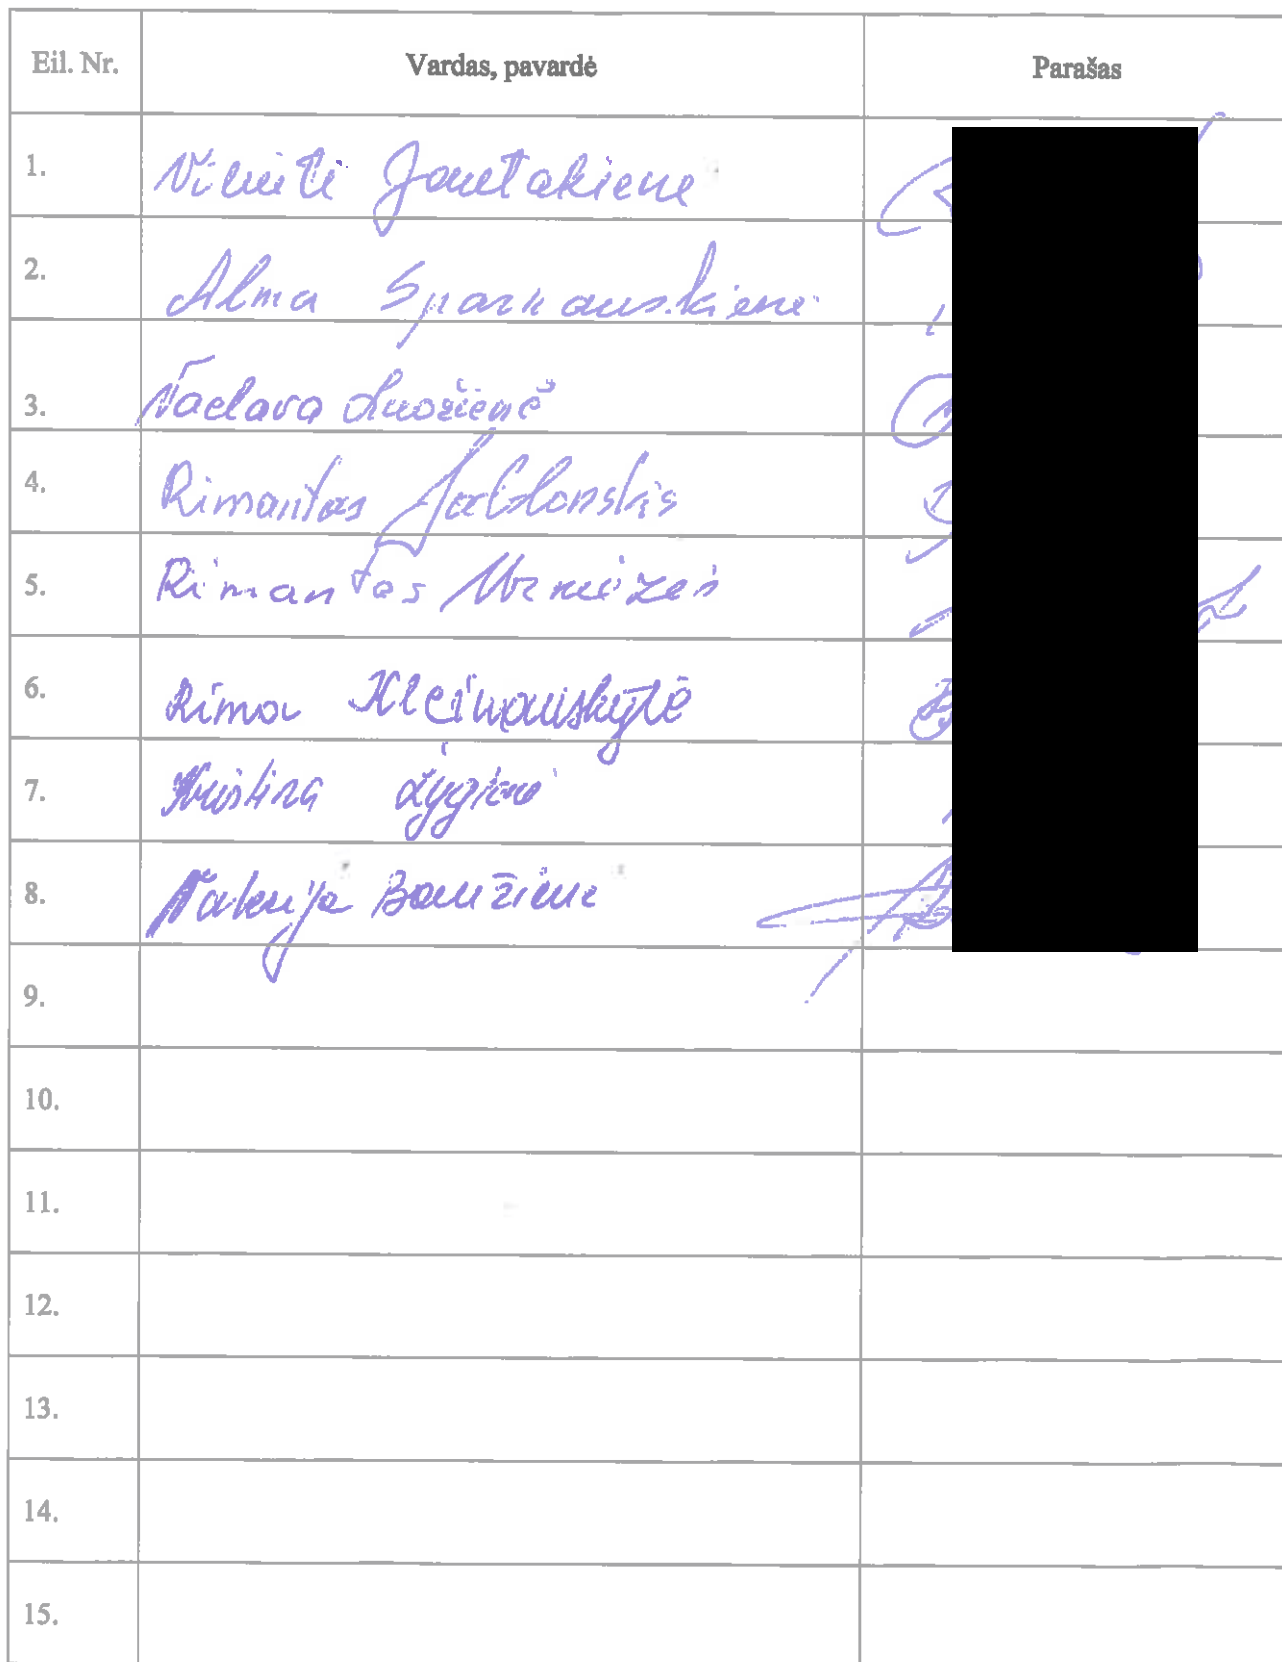 Eil. Nr. Vardas, pavardė Parašas
1. Jonutakienė
2. Alma
3. Vaclava Luožienė
4. Rimantas Jablonskis
5. Rimantas
6. Rima Kleinauskytė
7. Kristina Lygienė
8. Valerija Baužienė
9.
10.
11.
12.
13.
14.
15.